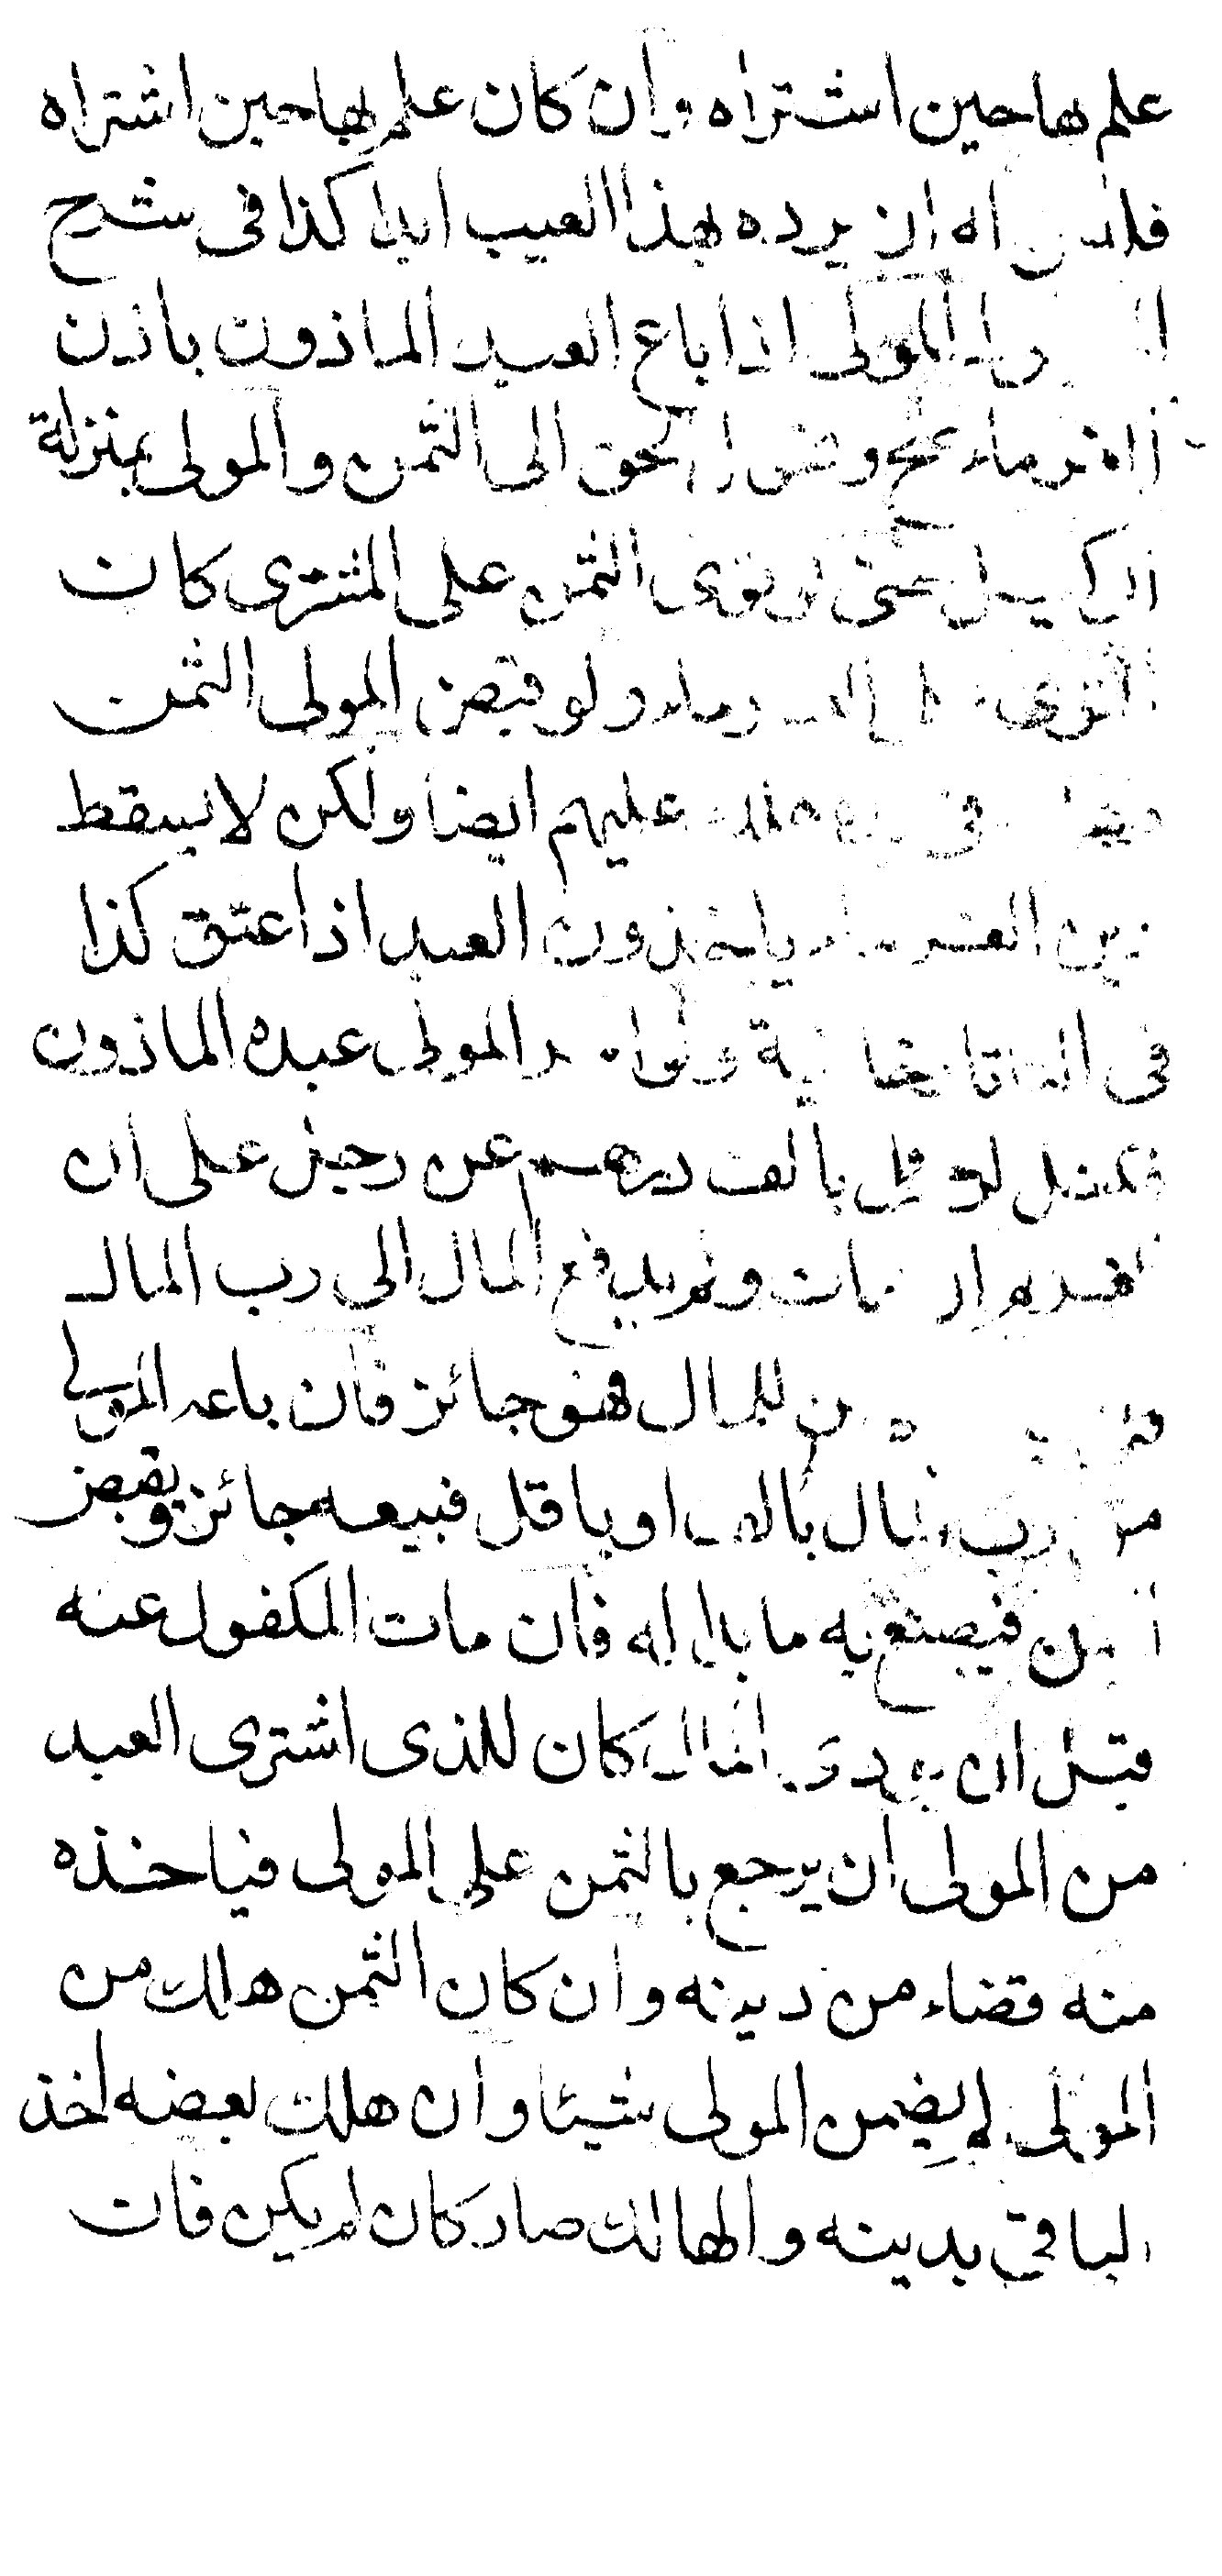 علم بها حين اشتراه وان كان علم بها حين اشتراه
فليس له ان يرده بهذا العيب ابدا كذا فى شرح
المولى اذا باع العبد الماذون باذن
الغرماء صح وتحول الحق الى الثمن والمولى بمنزلة
الوكيل حتى لو توى الثمن على المشترى كان
التوى على الغرماء ولو قبض المولى الثمن
فى يده هلك عليهم ايضا ولكن لا يسقط
دين الغرماء ياخذون العبد اذا اعتق كذا
فى التتارخانية ولو امر المولى عبده الماذون
فكفل لرجل بالف درهم عن رجل على ان
الغريم ان مات ولم يدفع المال الى رب المال
ضامن للمال فهو جائز فان باعه المولى
من رب المال بالف او باقل فبيعه جائز ويقبض
الثمن فيصنع به ما بدا له فان مات المكفول عنه
قبل ان يودى المال كان للذى اشترى العبد
من المولى ان يرجع بالثمن على المولى فياخذه
منه قضاء من دينه وان كان الثمن هلك من
المولى لم يضمن المولى شيئا وان هلك بعضه اخذ
الباقى بدينه والهالك صار كان لم يكن فات